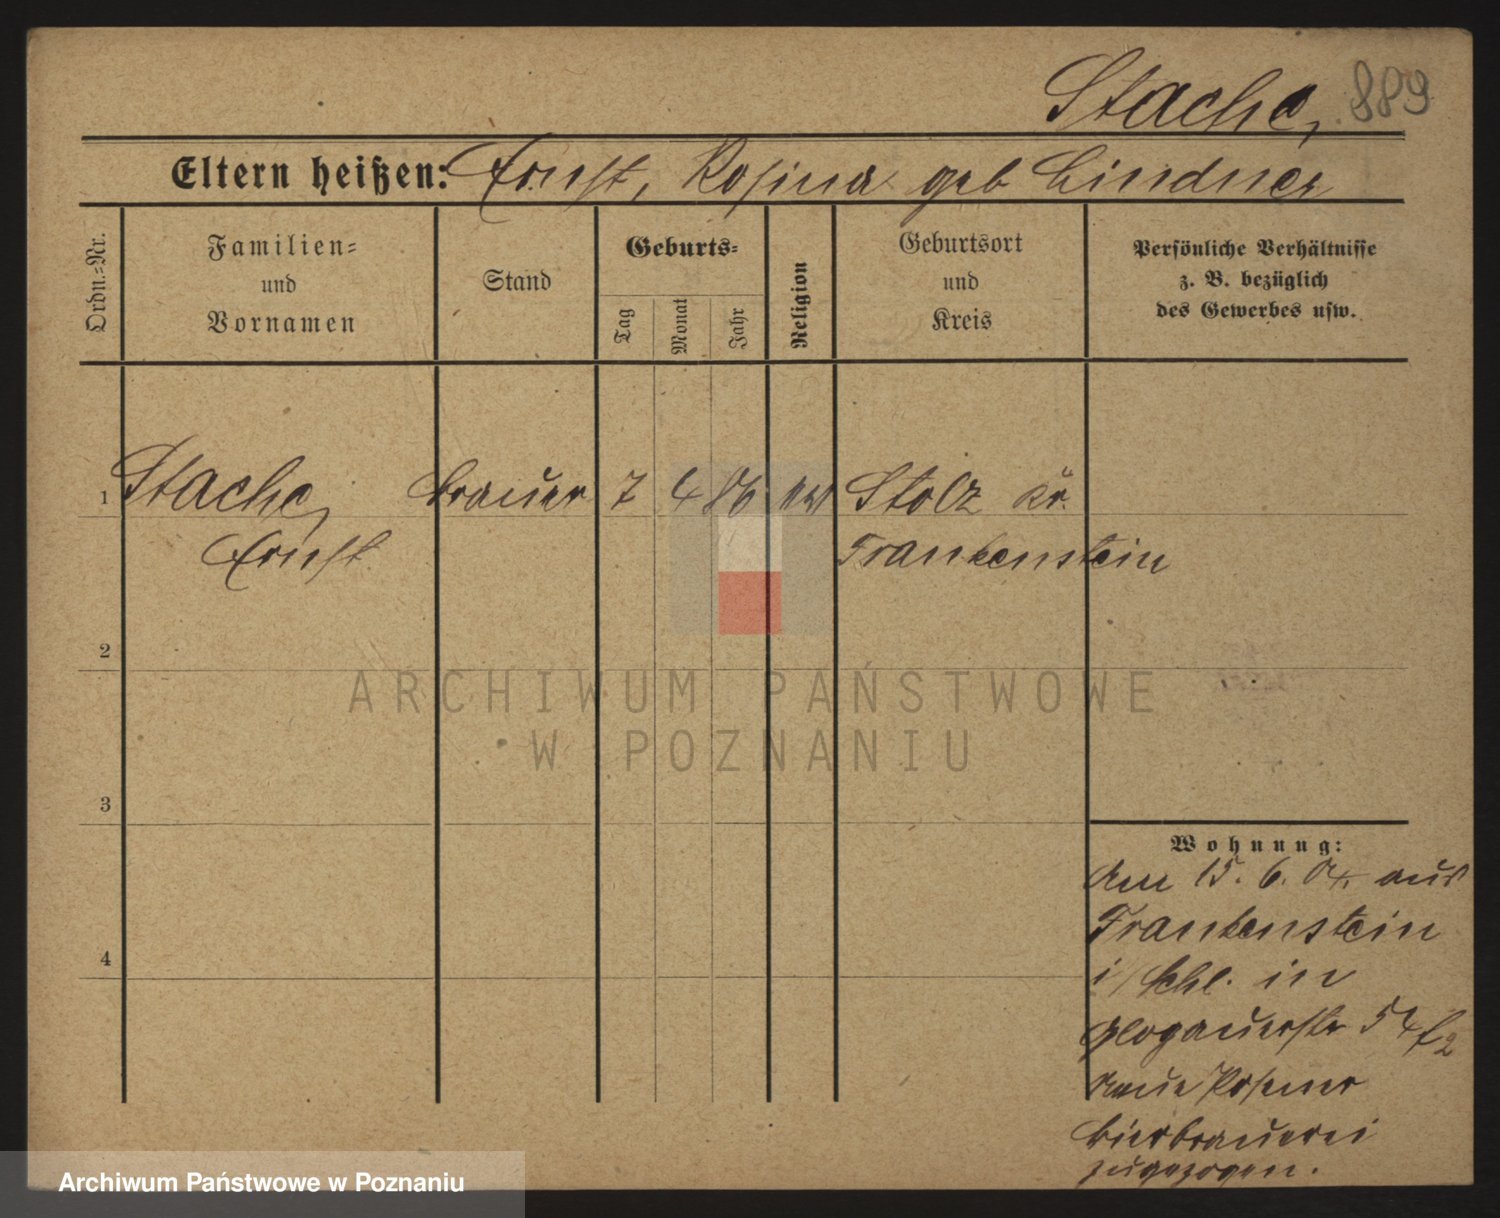 Stache, 889
Eltern heißen: Ernst, Rosina geb Lindner
Ordn.=Nr.
Familien=
und
Vornamen
Stand
Geburts=
Tag
Monat
Jahr
Religion
Geburtsort
und
Kreis
Persönliche Verhältnisse
z. B. bezüglich
des Gewerbes usw.
1 Stache, Brauer 7 4 86 Stolz Kr.
Ernst Frankenstein
2
3
4
Wohnung:
Am 15. 6. 04. aus
Frankenstein
i/Schl. in
Glogauerstr 54
Neue Posener
Bierbrauerei
zugezogen.
ARCHIWUM PAŃSTWOWE
W POZNANIU
Archiwum Państwowe w Poznaniu